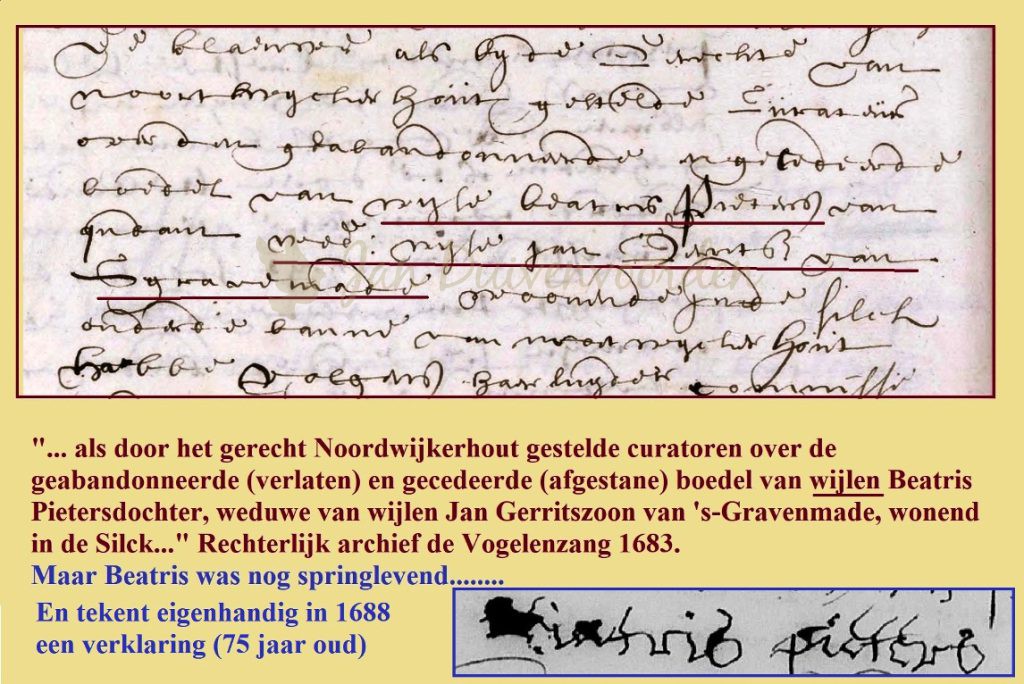 De Claeuwe als byde Gerechte van
Noortwycker Hout gestelde Curateurs
over den geabandonneerde en gecedeerde
boedel van wijle beatris Pieters van
wed: wijle Jan Gerritsz van
Sgravemade woonende inde Silck
onder de banne van Noortwycker Hout
hebbe volgens haerluyder Commissie
Jan Duivenvoorden
"... als door het gerecht Noordwijkerhout gestelde curatoren over de
geabandonneerde (verlaten) en gecedeerde (afgestane) boedel van wijlen Beatris
Pietersdochter, weduwe van wijlen Jan Gerritszoon van 's-Gravenmade, wonend
in de Silck..." Rechterlijk archief de Vogelenzang 1683.
Maar Beatris was nog springlevend........
En tekent eigenhandig in 1688
een verklaring (75 jaar oud)
pieters